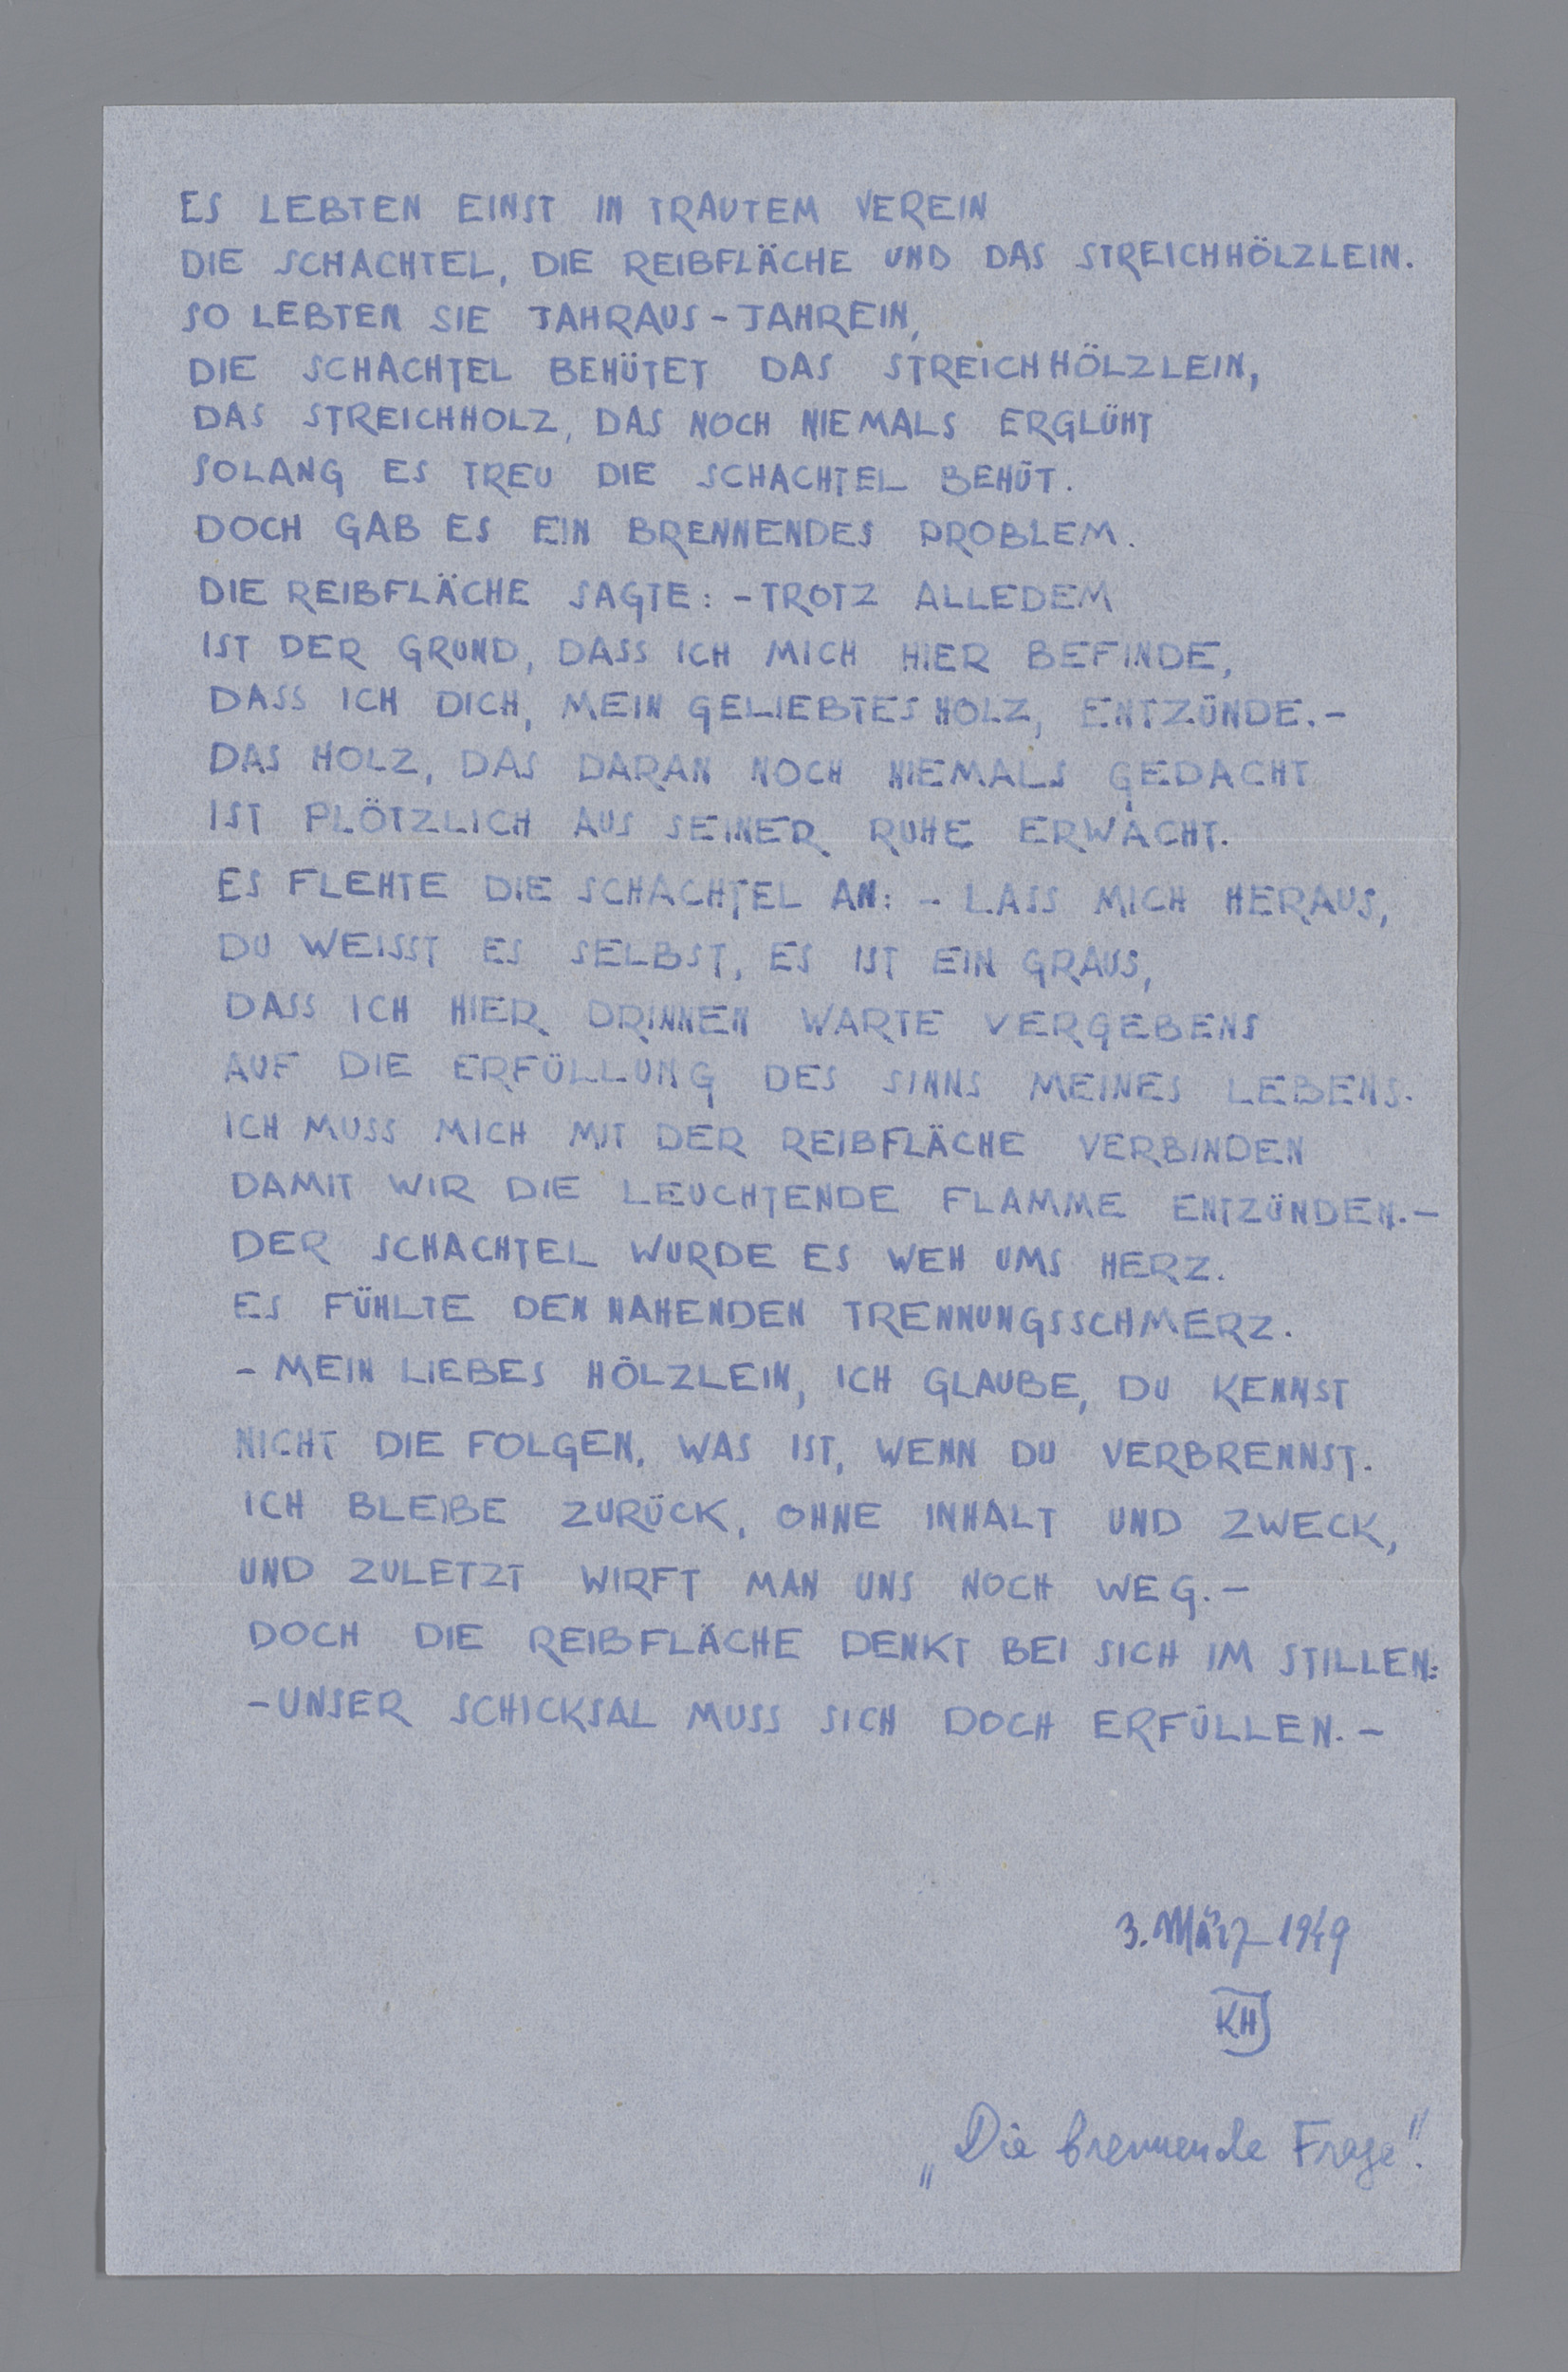 ES LEBTEN EINST IN TRAUTEM VEREIN
DIE SCHACHTEL, DIE REIBFLÄCHE UND DAS STREICHHÖLZLEIN.
SO LEBTEN SIE JAHRAUS - JAHREIN,
DIE SCHACHTEL BEHÜTET DAS STREICHHÖLZLEIN,
DAS STREICHHOLZ, DAS NOCH NIEMALS ERGLÜHT
SOLANG ES TREU DIE SCHACHTEL BEHÜT.
DOCH GAB ES EIN BRENNENDES PROBLEM.
DIE REIBFLÄCHE SAGTE: - TROTZ ALLEDEM
IST DER GRUND, DASS ICH MICH HIER BEFINDE,
DASS ICH DICH, MEIN GELIEBTES HOLZ, ENTZÜNDE. -
DAS HOLZ, DAS DARAN NOCH NIEMALS GEDACHT
IST PLÖTZLICH AUS SEINER RUHE ERWACHT.
ES FLEHTE DIE SCHACHTEL AN: - LASS MICH HERAUS,
DU WEISST ES SELBST, ES IST EIN GRAUS,
DASS ICH HIER DRINNEN WARTE VERGEBENS
AUF DIE ERFÜLLUNG DES SINNS MEINES LEBENS.
ICH MUSS MICH MIT DER REIBFLÄCHE VERBINDEN
DAMIT WIR DIE LEUCHTENDE FLAMME ENTZÜNDEN. -
DER SCHACHTEL WURDE ES WEH UMS HERZ.
ES FÜHLTE DEN NAHENDEN TRENNUNGSSCHMERZ.
- MEIN LIEBES HÖLZLEIN, ICH GLAUBE, DU KENNST
NICHT DIE FOLGEN, WAS IST, WENN DU VERBRENNST.
ICH BLEIBE ZURÜCK, OHNE INHALT UND ZWECK,
UND ZULETZT WIRFT MAN UNS NOCH WEG. -
DOCH DIE REIBFLÄCHE DENKT BEI SICH IM STILLEN:
- UNSER SCHICKSAL MUSS SICH DOCH ERFÜLLEN. -
3. März 1949
KH
„Die brennende Frage".